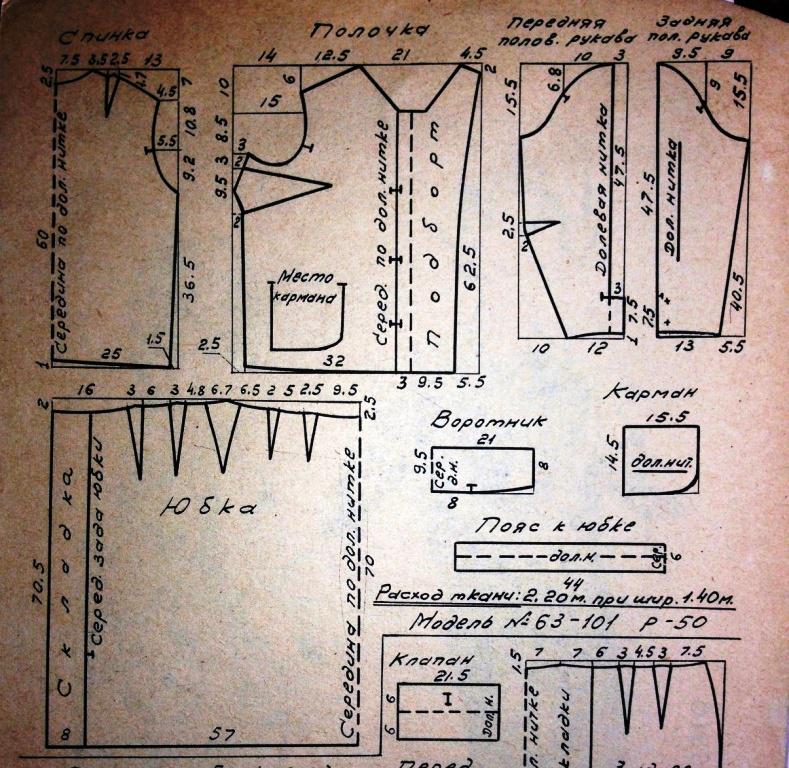 Спинка
7.5 3.5 2.5 13
2.5
1.7
4.5
7
10.8
5.5
9.2
60
Середина по дол. нитке
36.5
1.5
1
25
Полочка
14 12.5 21 4.5
10
6
2
15
8.5
3
3
2
9.5
2
Место
кармана
Серед. по дол. нитке
Подборт
62.5
2.5
32
3 9.5 5.5
Передняя
полов. рукава
10 3
15.5
6.8
Долевая нитка
47.5
2.5
2
3
7.5
1
10 12
Задняя
пол. рукава
9.5 9
9
15.5
47.5
дол. нитка
40.5
7.5
13 5.5
16 3 6 3 4.8 6.7 6.5 2 5 2.5 9.5
2
2.5
Складка
Серед. зада юбки
Юбка
Середина по дол. нитке
70.5
70
8
57
Воротник
21
9.5
Сер.
д.н.
8
8
Карман
15.5
14.5
дол.нит.
Пояс к юбке
дол.н.
Сер.
6
44
Расход ткани: 2.20м. при шир. 1.40м.
Модель № 63-101 Р-50
Клапан
21.5
6
6
дол.н.
1.5
7 7 6 3 4.5 3 7.5
л. нитке
кладки
Перед